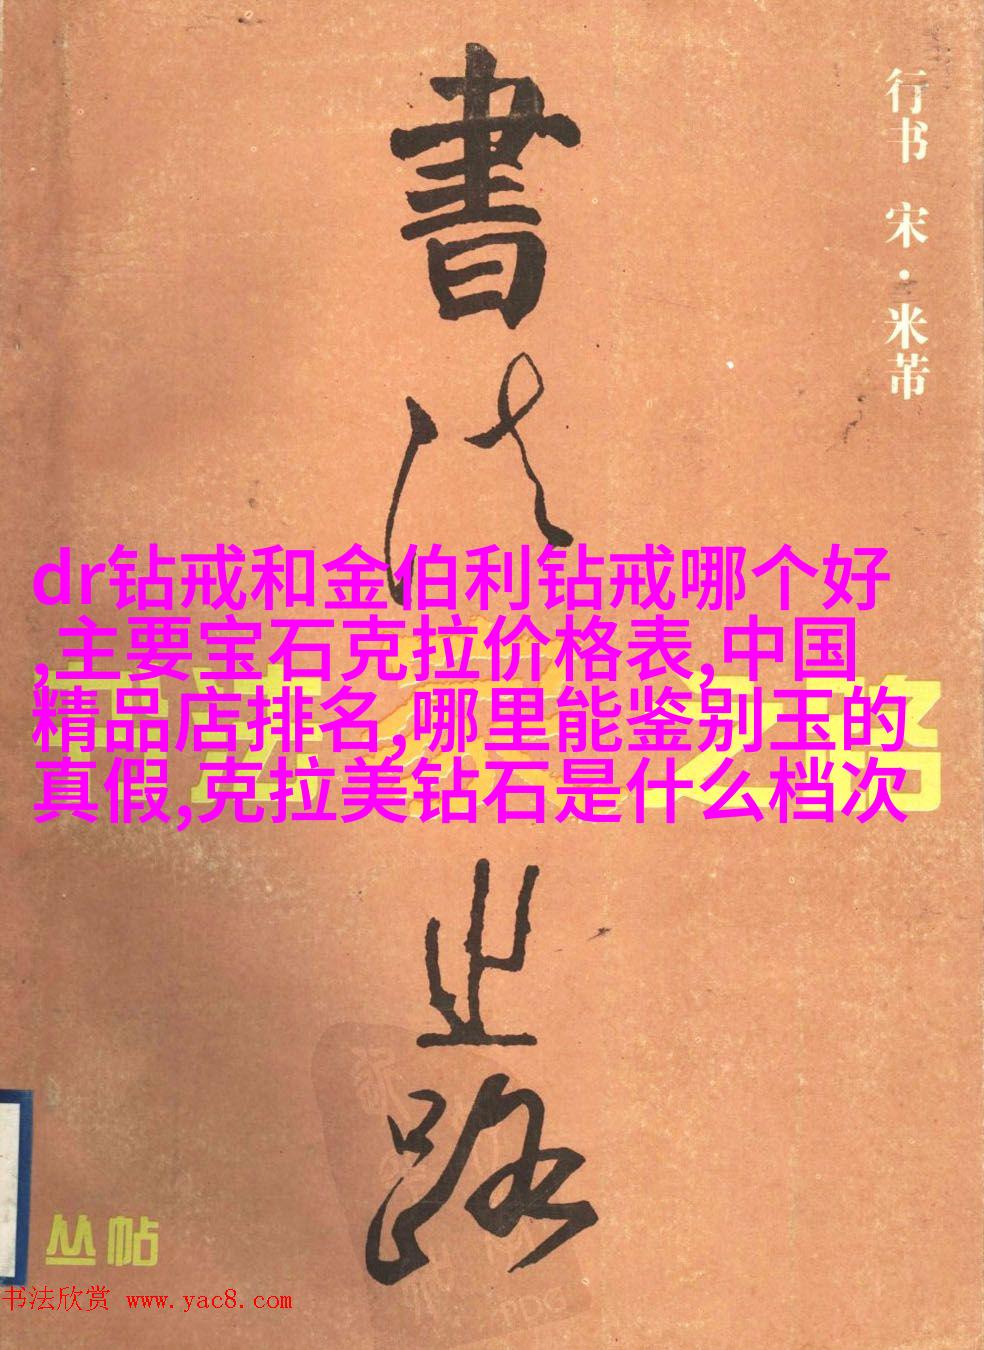 行书 宋·米芾
書法之路
dr钻戒和金伯利钻戒哪个好
,主要宝石克拉价格表,中国
精品店排名,哪里能鉴别玉的
真假,克拉美钻石是什么档次
之路
丛帖
书法欣赏 www.yac8.com